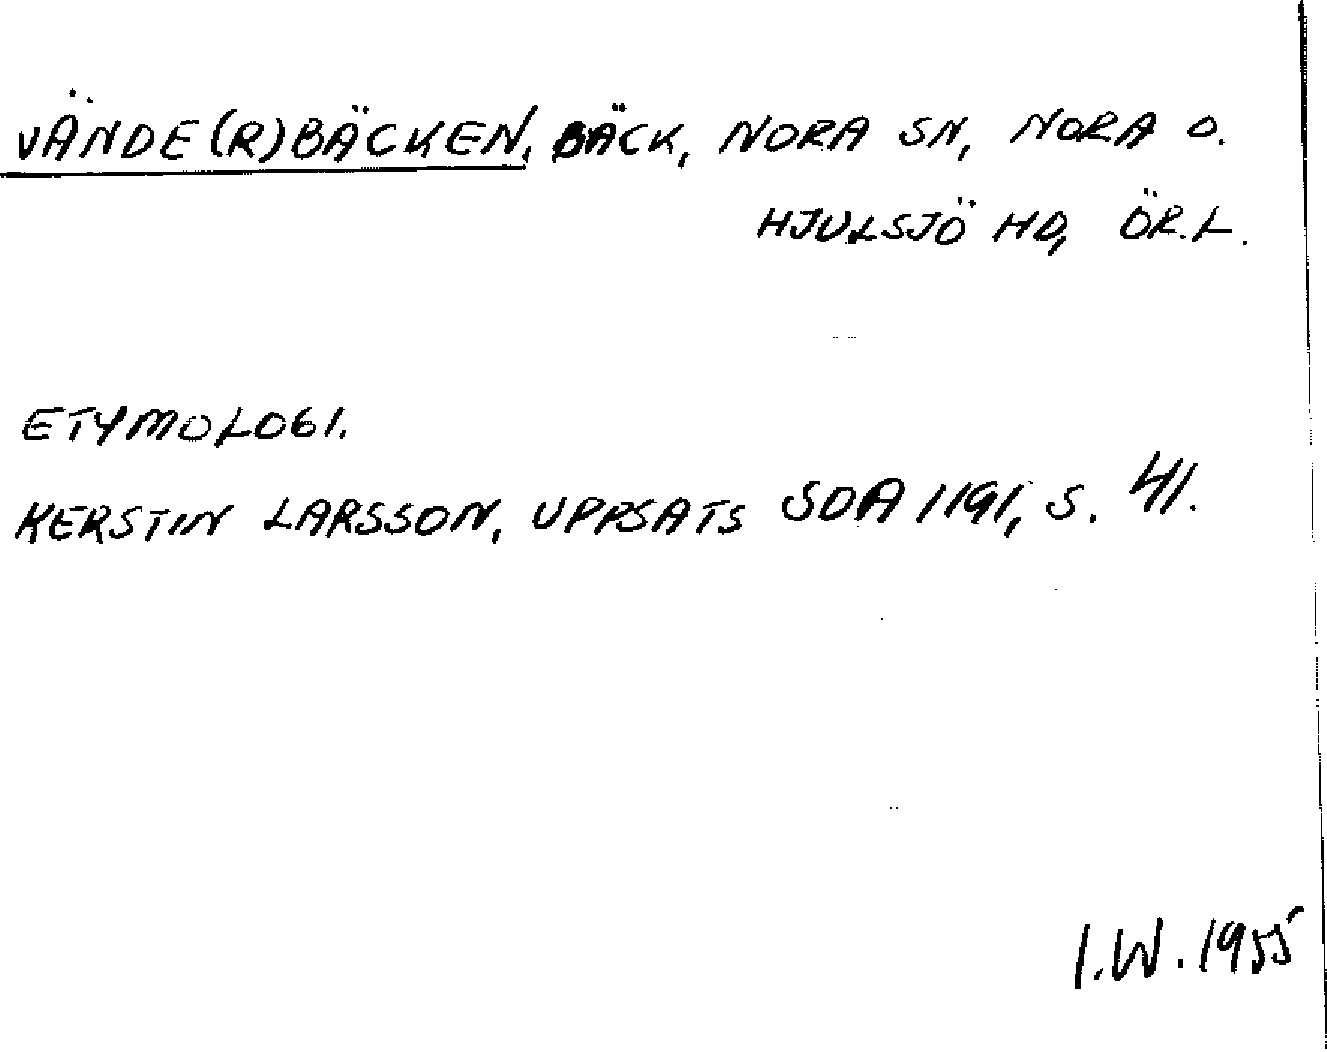 VÄNDE(R)BÄCKEN, BÄCK, NORA SN, NORA O.
HJULSJÖ HD, ÖR.L.
ETYMOLOGI.
KERSTIN LARSSON, UPPSATS SOA 1191, S. 41.
I.W. 1955